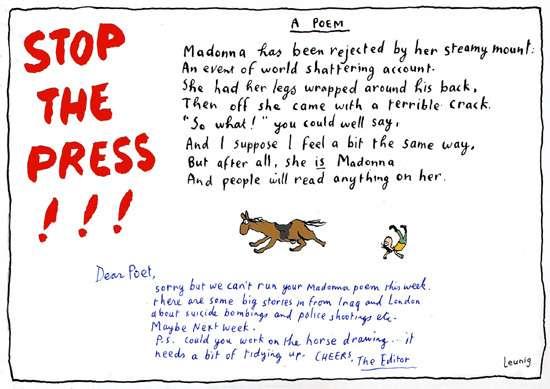 STOP
THE
PRESS
!!!
A POEM
Madonna has been rejected by her steamy mount:
An event of world shattering account.
She had her legs wrapped around his back,
Then off she came with a terrible crack.
"So what!" you could well say,
And I suppose I feel a bit the same way,
But after all, she is Madonna
And people will read anything on her.
Dear Poet,
sorry but we can't run your Madonna poem this week.
there are some big stories in from Iraq and London
about suicide bombings and police shootings etc.
Maybe Next week.
P.S. could you work on the horse drawing... it
needs a bit of tidying up. CHEERS. The Editor
Leunig